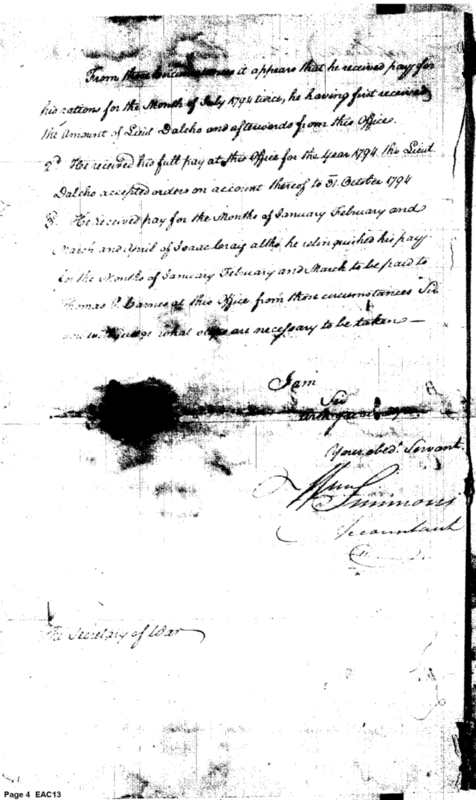 From these Circumstances it appears that he received pay for
his rations for the Month of July 1794 twice, he having first received
the Amount of Lieut Dalcho and afterwards from this Office.
2d. He received his full pay at this Office for the year 1794 tho Lieut
Dalcho accepted orders on account thereof to 31. October 1794
3. He received pay for the Months of January February and
March and April of Isaac Craig altho he relinquished his pay
for the Months of January February and March to be paid to
Thomas P. Carnes at this Office from these circumstances Sir
you will judge what steps are necessary to be taken —
I am
Sir
Your obed. Servant
Wm Simmons
Accountant
The Secretary of War
Page 4 EAC13